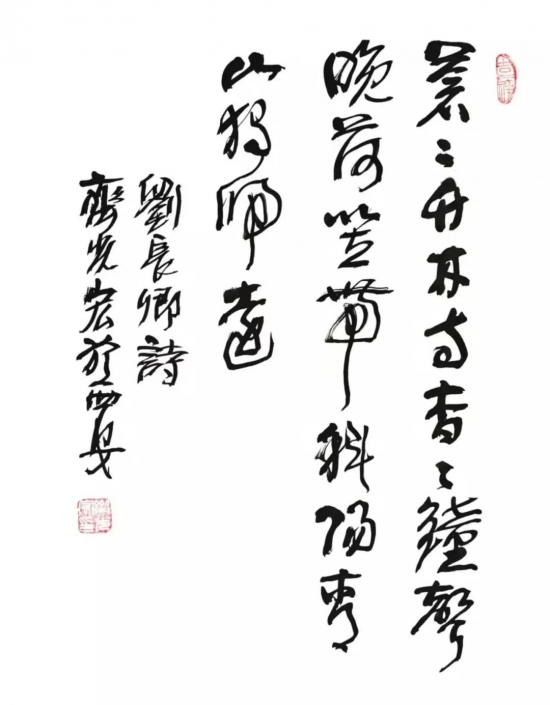 蒼〻竹林寺杳〻鐘聲
晚荷笠帶斜陽青
山獨歸遠
劉長卿詩
齊光宏於西安